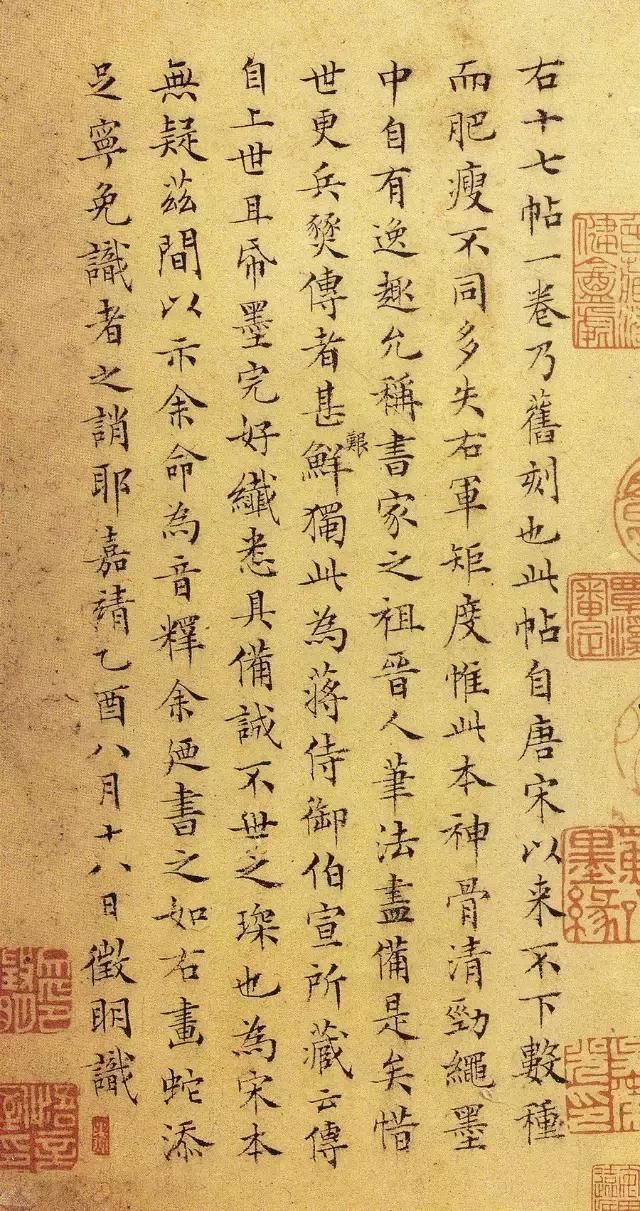 右十七帖一卷乃舊刻也此帖自唐宋以来不下數種
而肥瘦不同多失右軍矩度惟此本神骨清勁繩墨
中自有逸趣允稱書家之祖晉人筆法盡備是矣惜
世更兵燹傳者甚鮮獨此為蔣侍御伯宣所藏云傳
自上世且帋墨完好纖悉具備誠不世之琛也為宋本
無疑茲間以示余命為音釋余廼書之如右畫蛇添
足寧免識者之誚耶嘉靖乙酉八月十八日徵明識
覃溪審定
墨緣